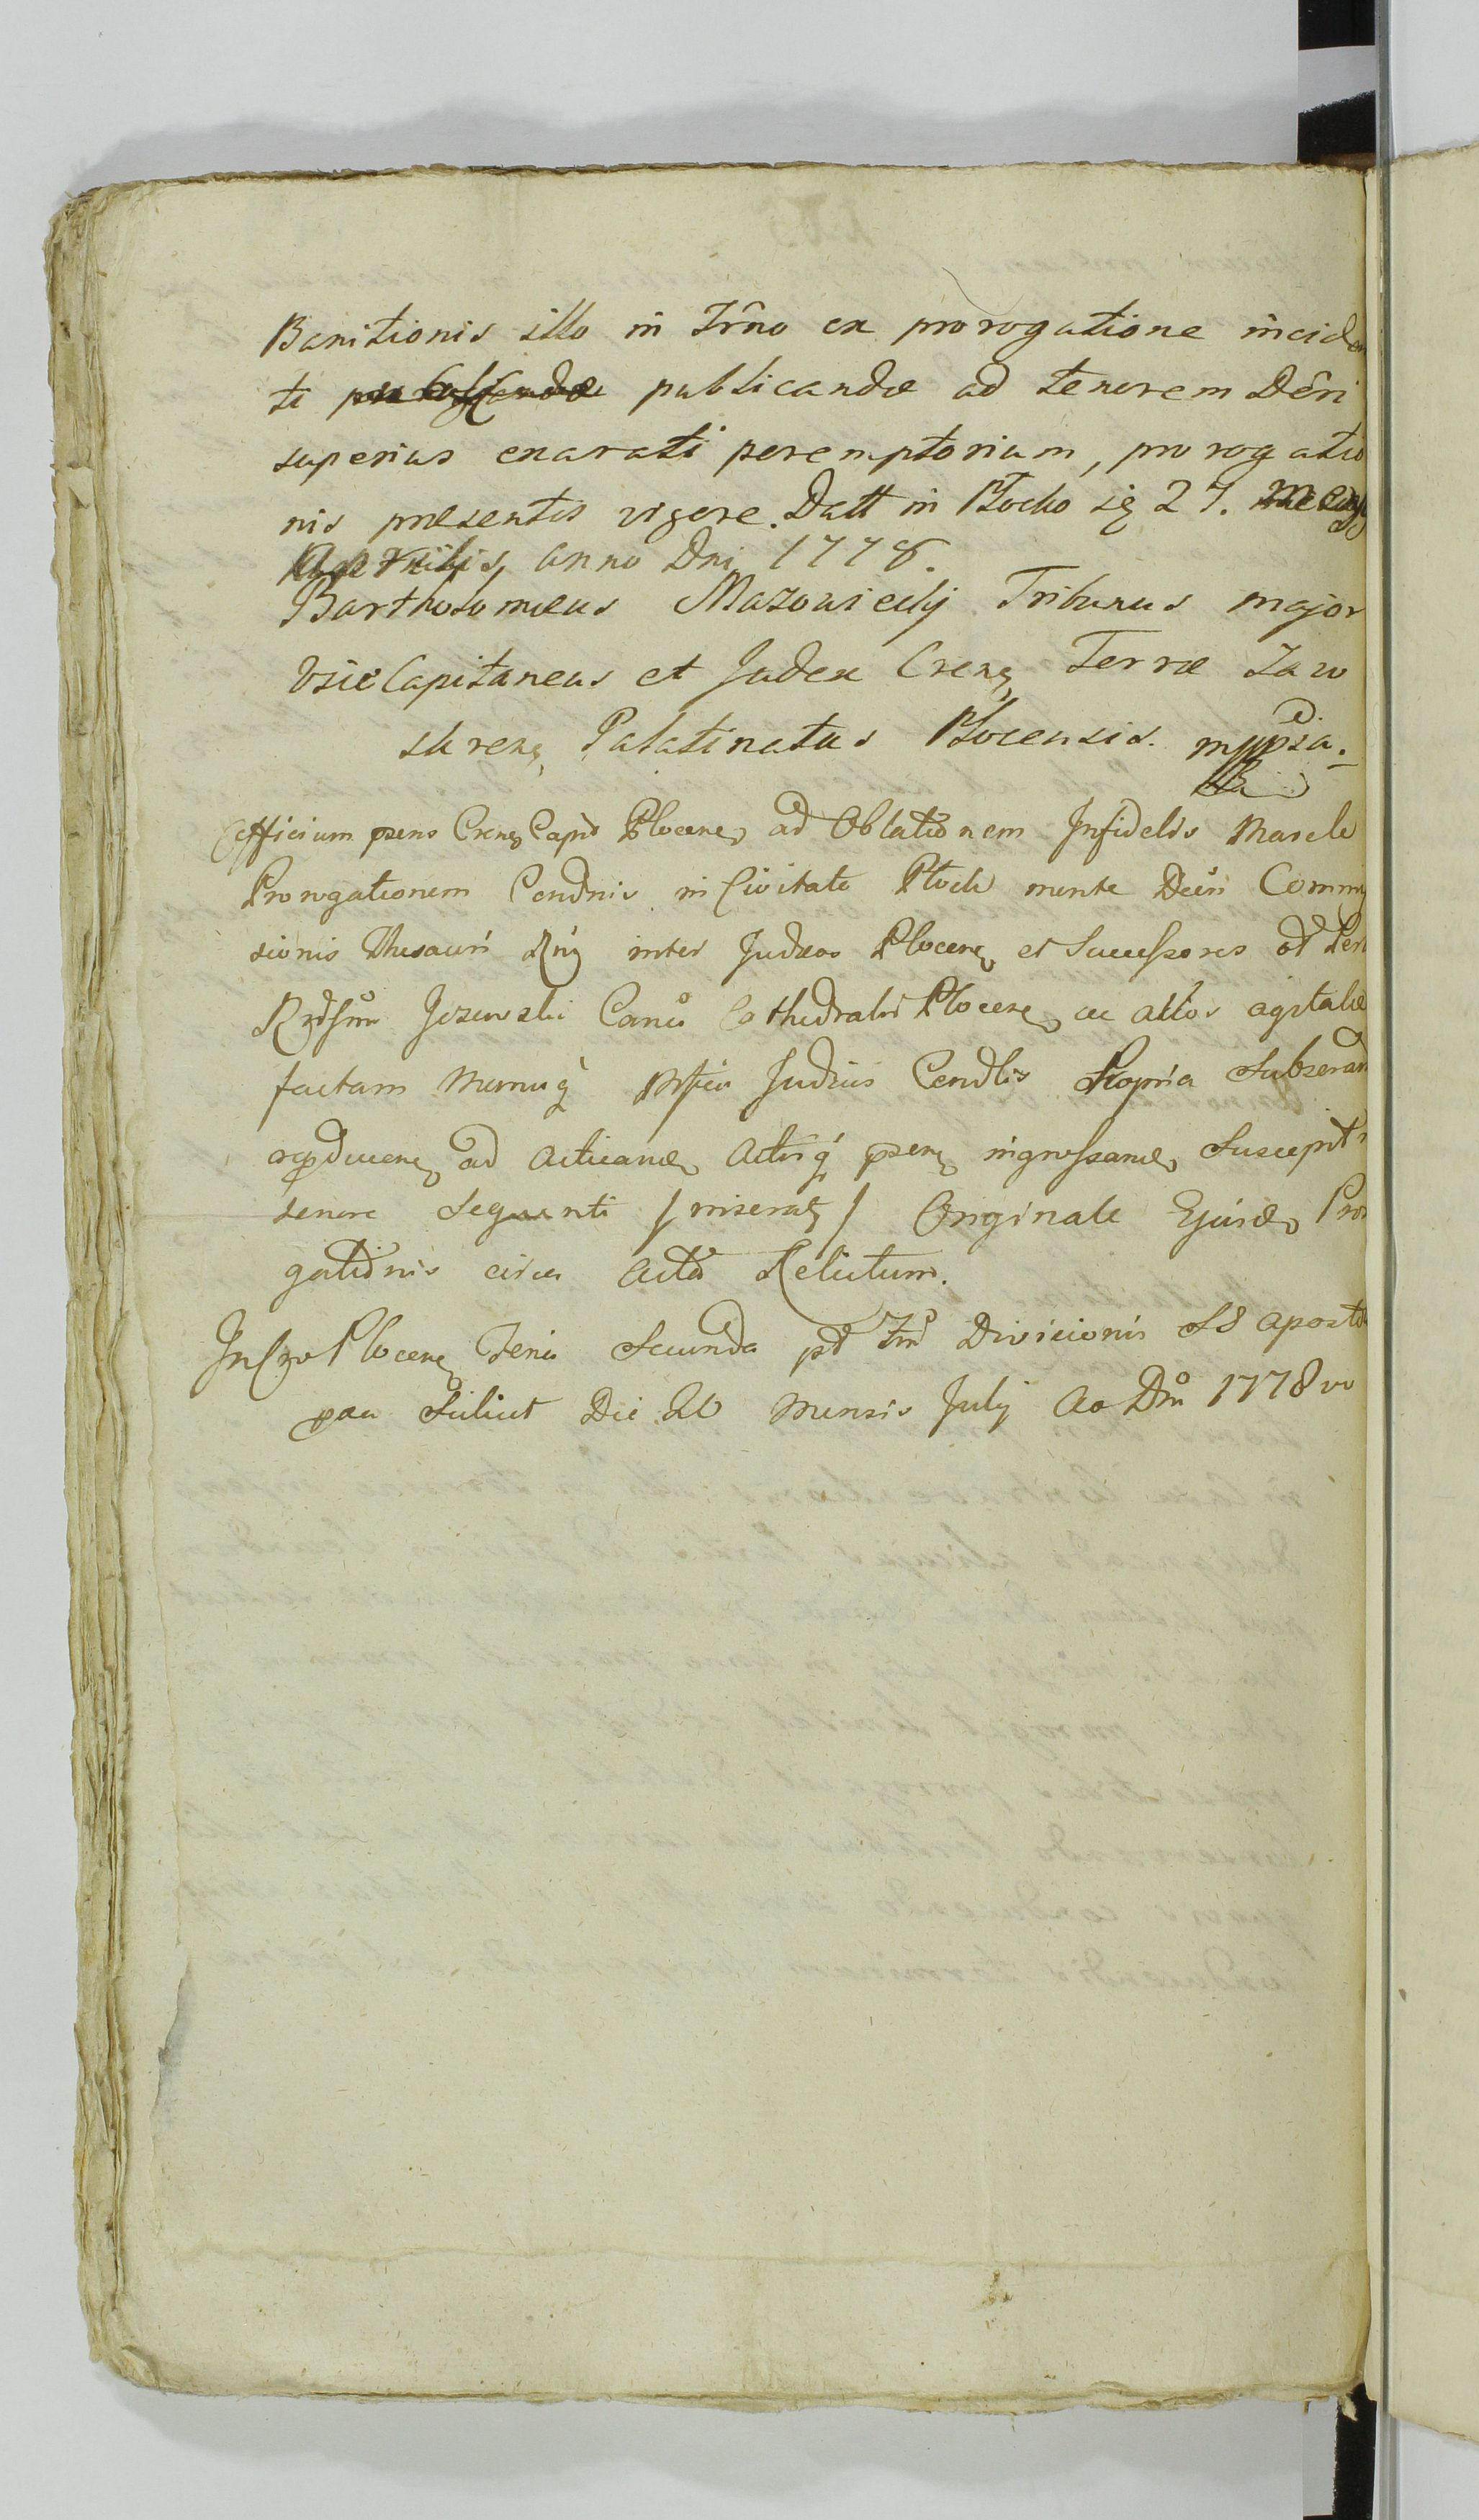 Banitionis illo in Trno ex prorogatione inciden
te publicandæ ad tenorem Dêri
superius exarati peremptorium, prorogatio
nis præsentis vigore. Datt in Płocko
Aprilis, anno Dni 1778.
Bartholomæus Mazowiecky Tribunus major
Vice Capitaneus et Judex Crenę Terræ Zaw
skrenę Palatinatus Plocensis. mppria.
Officium præns Crenę Capit Plocenę ad Oblationem Infidelis Marcle
Prorogationem Condnis in Civitate Plock mente Decri Commis
sionis Thesauri Rni inter Judæos Plocenę et Successores ad
Jezewski Canci Cathedralis Plocenę ac alios agitatæ
factam Manuq Judicis Condlis Propria Subscrān
reproducenę ad acticandę Actisq præn ingrossandę Suscepit
tenore Sequenti / inseratę / Originale Ejusdę Proro
gationis circa Acta Relictum.
In Cro Plocenę Feria Secunda pt Fm Divisionis SS Apostol
pxa Scilicet Die 20 Mensis July Ao Dni 1778vo